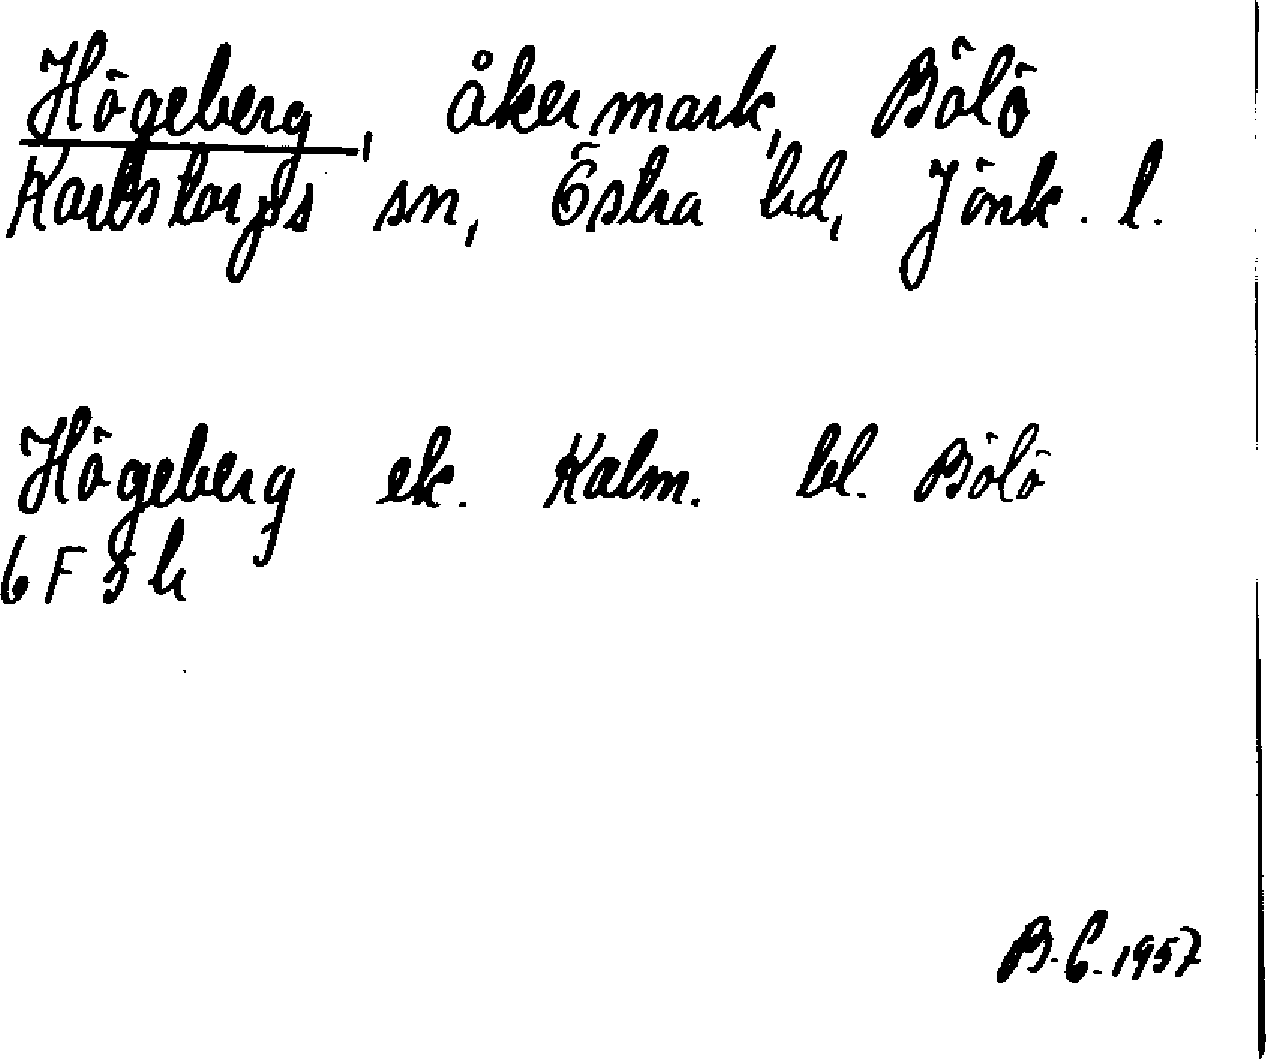 Högeberg, åkermark, Bölö
Karlstorps sn, Östra hd, Jönk. l.
Högeberg ek. Kalm. bl. Bölö
6 F 5 h
B. C. 1957